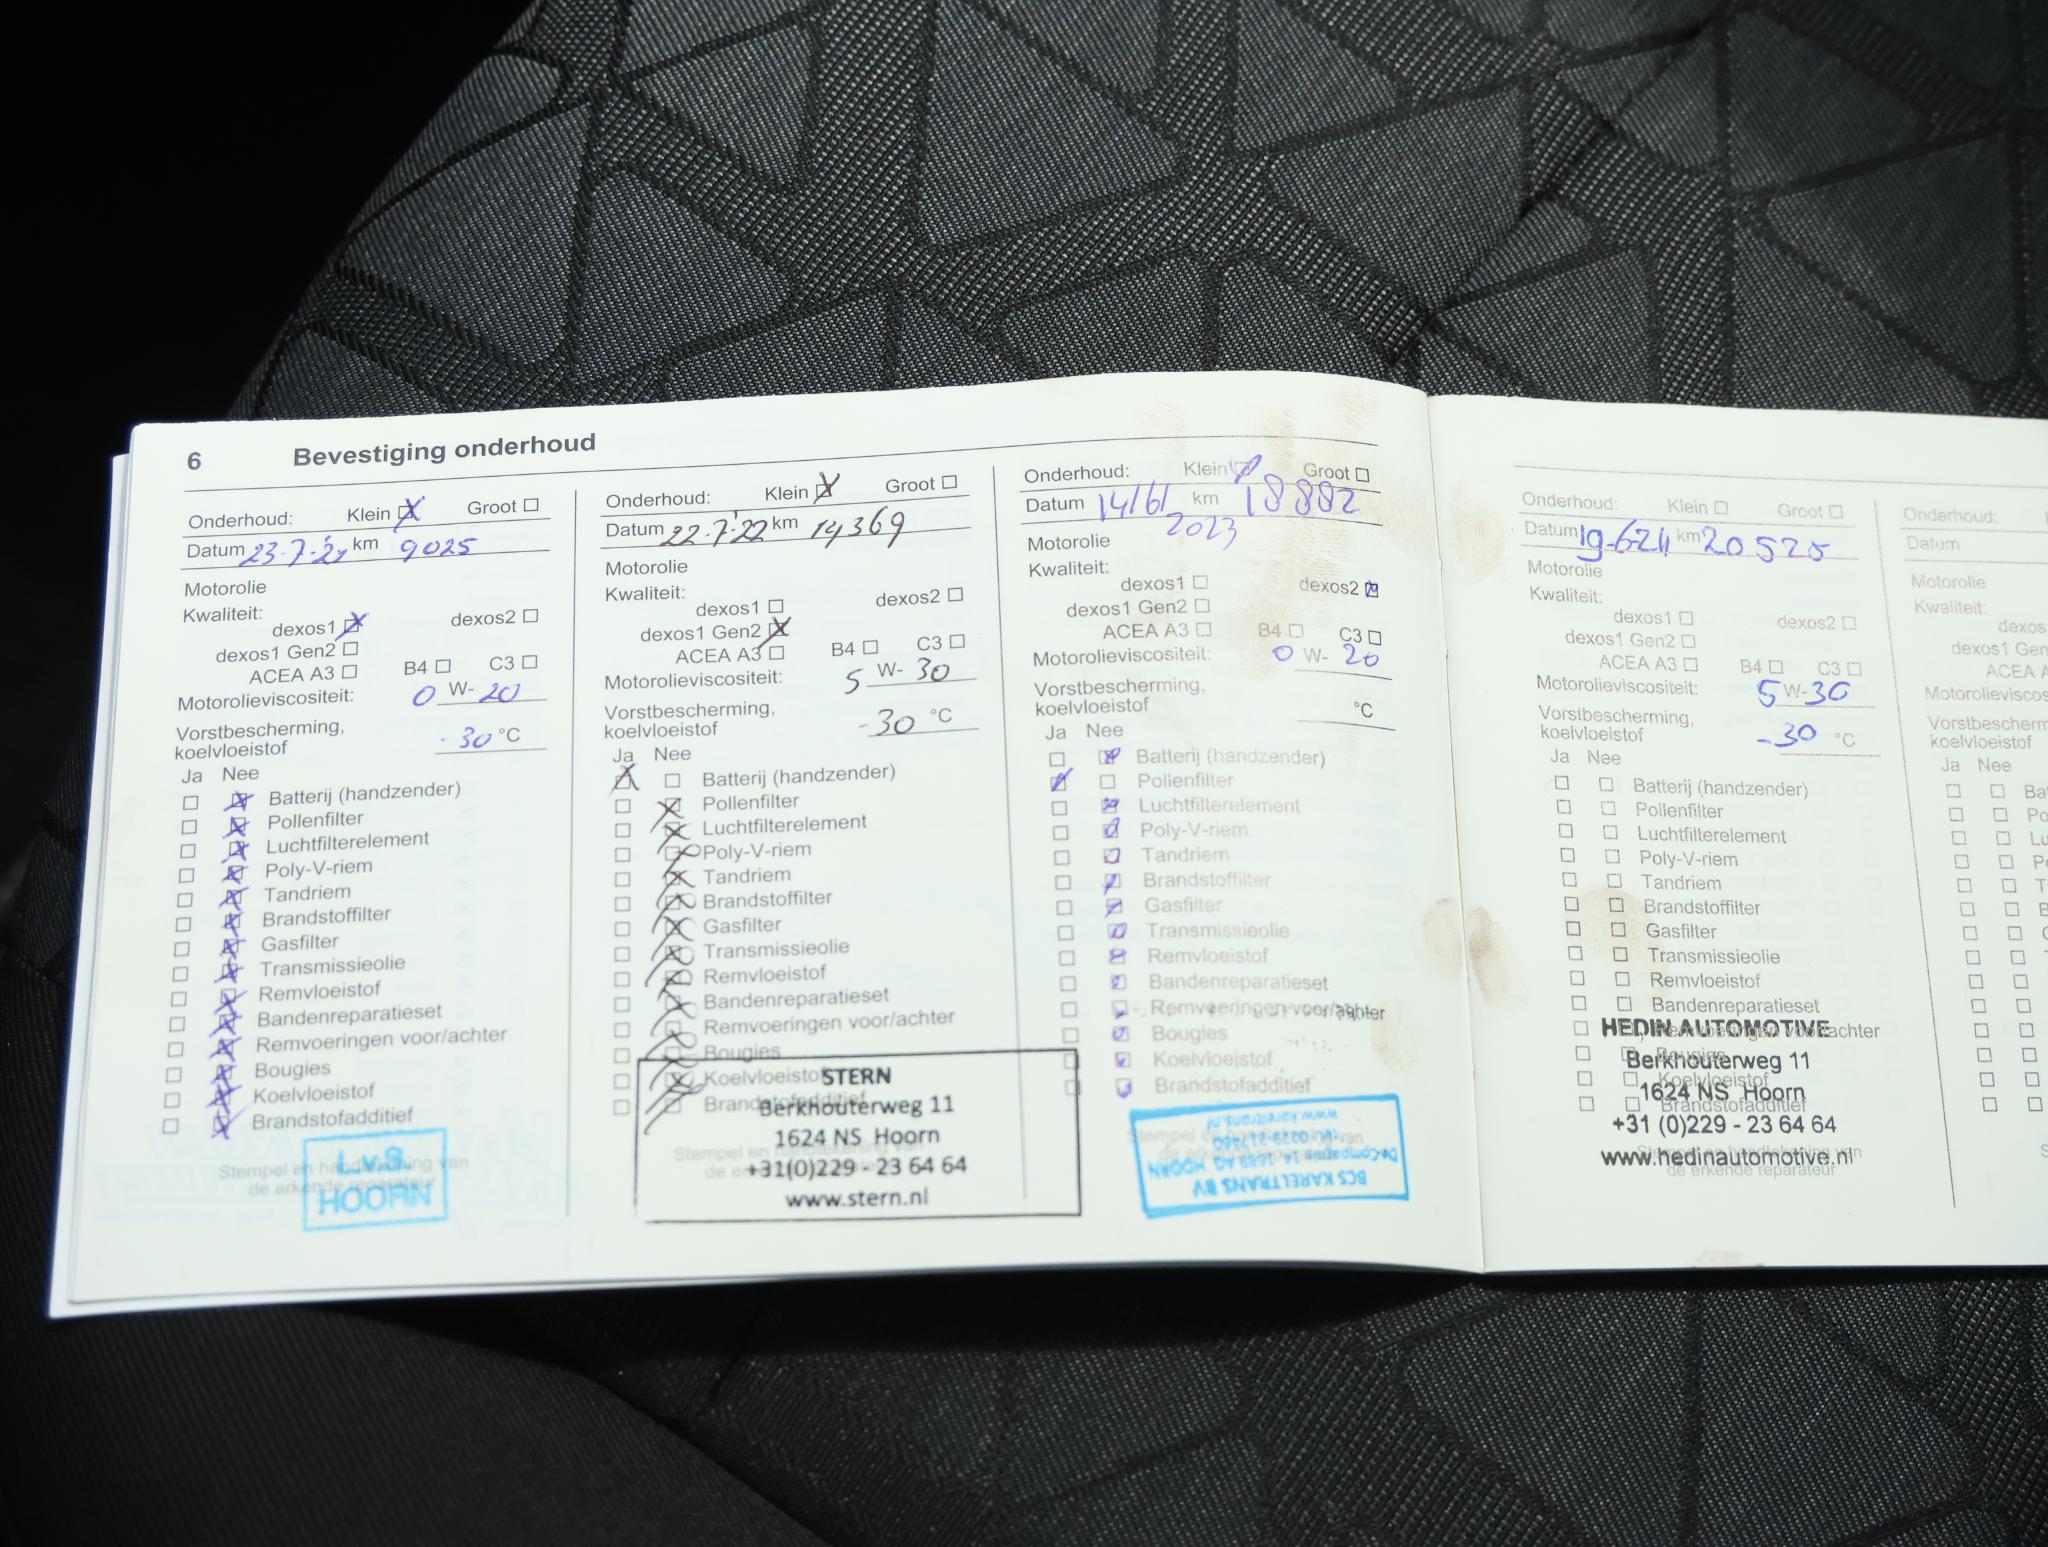 6 Bevestiging onderhoud
Onderhoud: Klein Groot
Datum 23-7-'21 km 9025
Motorolie
Kwaliteit:
dexos1 dexos2
dexos1 Gen2
ACEA A3 B4 C3
Motorolieviscositeit: 0 W- 20
Vorstbescherming,
koelvloeistof -30 °C
Ja Nee
Batterij (handzender)
Pollenfilter
Luchtfilterelement
Poly-V-riem
Tandriem
Brandstoffilter
Gasfilter
Transmissieolie
Remvloeistof
Bandenreparatieset
Remvoeringen voor/achter
Bougies
Koelvloeistof
Brandstofadditief
Stempel en handtekening van
de erkende reparateur
HOORN
Onderhoud: Klein Groot
Datum 22-7-'22 km 14369
Motorolie
Kwaliteit:
dexos1 dexos2
dexos1 Gen2
ACEA A3 B4 C3
Motorolieviscositeit: 5 W- 30
Vorstbescherming,
koelvloeistof -30 °C
Ja Nee
Batterij (handzender)
Pollenfilter
Luchtfilterelement
Poly-V-riem
Tandriem
Brandstoffilter
Gasfilter
Transmissieolie
Remvloeistof
Bandenreparatieset
Remvoeringen voor/achter
Bougies
Koelvloeistof
Brandstofadditief
Stempel en handtekening van
de erkende reparateur
STERN
Berkhouterweg 11
1624 NS Hoorn
+31(0)229 - 23 64 64
www.stern.nl
Onderhoud: Klein Groot
Datum 14/6/ km 18882
2023
Motorolie
Kwaliteit:
dexos1 dexos2
dexos1 Gen2
ACEA A3 B4 C3
Motorolieviscositeit: 0 W- 20
Vorstbescherming,
koelvloeistof °C
Ja Nee
Batterij (handzender)
Pollenfilter
Luchtfilterelement
Poly-V-riem
Tandriem
Brandstoffilter
Gasfilter
Transmissieolie
Remvloeistof
Bandenreparatieset
Remvoeringen voor/achter
Bougies
Koelvloeistof
Brandstofadditief
Stempel en handtekening van
de erkende reparateur
BCS KARELTRANS BV
De Compagnie 14 1689 AG HOORN
www.kareltrans.nl
Onderhoud: Klein Groot
Datum 19-6-24 km 20525
Motorolie
Kwaliteit:
dexos1 dexos2
dexos1 Gen2
ACEA A3 B4 C3
Motorolieviscositeit: 5 W- 30
Vorstbescherming,
koelvloeistof -30 °C
Ja Nee
Batterij (handzender)
Pollenfilter
Luchtfilterelement
Poly-V-riem
Tandriem
Brandstoffilter
Gasfilter
Transmissieolie
Remvloeistof
Bandenreparatieset
Remvoeringen voor/achter
Bougies
Koelvloeistof
Brandstofadditief
Stempel en handtekening van
de erkende reparateur
HEDIN AUTOMOTIVE
Berkhouterweg 11
1624 NS Hoorn
+31 (0)229 - 23 64 64
www.hedinautomotive.nl
Onderhoud:
Datum
Motorolie
Kwaliteit:
dexos
dexos1 Ge
ACEA A
Motorolieviscos
Vorstbescherm
koelvloeistof
Ja Nee